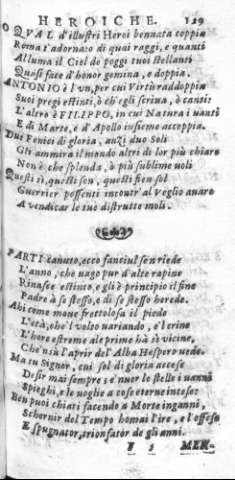 HEROICHE. 129
QVAL d'illustri Heroi bennata coppia
Roma t'adornaro di quai raggi, e quanti
Alluma il Ciel de poggi tuoi stellanti
Quasi face d'honor gemina, e doppia.
ANTONIO è l'un, per cui Virtù raddoppia
Suoi pregi estinti, ò ch'egli scriua, ò canti:
L'altro è FILIPPO, in cui Natura i uanti
E di Marte, e d'Apollo insieme accoppia.
Due Fenici di gloria, anzi duo Soli
Gli ammira il mondo altri di lor più chiaro
Non è che splenda, ò più sublime uoli
Questi sì, questi son, questi fien sol
Guerrier possenti incontr'al Veglio auaro
A vendicar le tue distrutte moli.
PARTI canuto, ecco fanciul sen riede
L'anno, che uago pur d'alte rapine
Rinasce estinto, e gli è principio il fine
Padre à se stesso, e di se stesso herede.
Ahi come moue frettolosa il piede
L'età, che'l volto uariando, e'l crine
L'hore estreme ale prime hà sì vicine,
Che'n sù l'aprir del'Alba Hespero uede.
Ma tu Signor, cui sol di gloria accese
Desir mai sempre; è nuer le stelle i uanni
Spieghi, e le uoglie a cose eterne intese:
Ben puoi chiari facendo a Morte inganni,
Schernir del Tempo homai l'ire, e l'offese
E spugnator, trionfator de gli anni.
F 5 MEN-